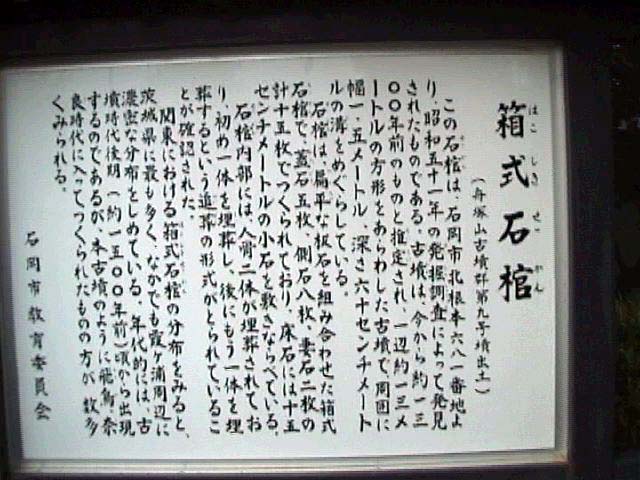 箱式石棺
はこしきせっかん
(舟塚山古墳群第九号墳出土)
この石棺は、石岡市北根本六八一番地よ
り、昭和五十一年の発掘調査によって発見
されたものである。古墳は、今から約一三
〇〇年前のものと推定され、一辺約一三メ
ートルの方形をあらわした古墳で、周囲に
幅一・五メートル、深さ六十センチメート
ルの溝をめぐらしている。
石棺は、扁平な板石を組み合わせた箱式
石棺で、蓋石五枚、側石八枚、妻石二枚の
計十五枚でつくられており、床石には十五
センチメートルの小石を敷きならべている。
石棺内部には、人骨二体が埋葬されてお
り、初め一体を埋葬し、後にもう一体を埋
葬するという追葬の形式がとられているこ
とが確認された。
関東における箱式石棺の分布をみると、
茨城県に最も多く、なかでも霞ヶ浦周辺に
濃密な分布をしめている。年代的には、古
墳時代後期(約一五〇〇年前)頃から出現
するのであるが、本古墳のように飛鳥・奈
良時代に入ってつくられたものの方が、数多
くみられる。
石岡市教育委員会